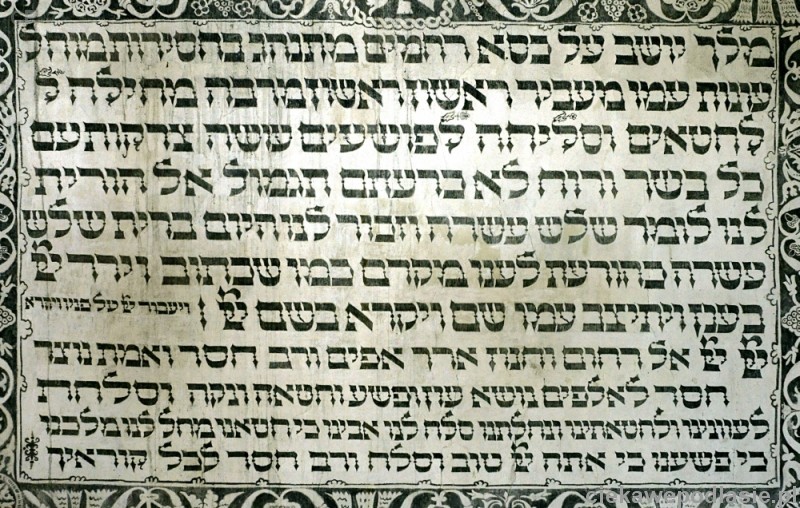 מלך יושב על כסא רחמים מתנהג בחסידות מוחל
עונות עמו מעביר ראשון ראשון מרבה מחילה ל
לחטאים וסליחה לפושעים עשה צדקות עם
כל בשר ורוח לא ברעתם תגמול אל הורית
לנו לומר שלש עשרה זכור לנו היום ברית שלש
עשרה כהודעת לענו מקדם כמו שכתוב וירד יי
בענן ויתיצב עמו שם ויקרא בשם יי ויעבור יי על פניו ויקרא
יי יי אל רחום וחנון ארך אפים ורב חסד ואמת נוצר
חסד לאלפים נושא עון ופשע וחטאה ונקה וסלחת
לעונינו ולחטאתינו ונחלתנו סלח לנו אבינו כי חטאנו מחל לנו מלכנו
כי פשענו כי אתה יי טוב וסלח ורב חסד לכל קוראיך
ciekawepodlasie.pl